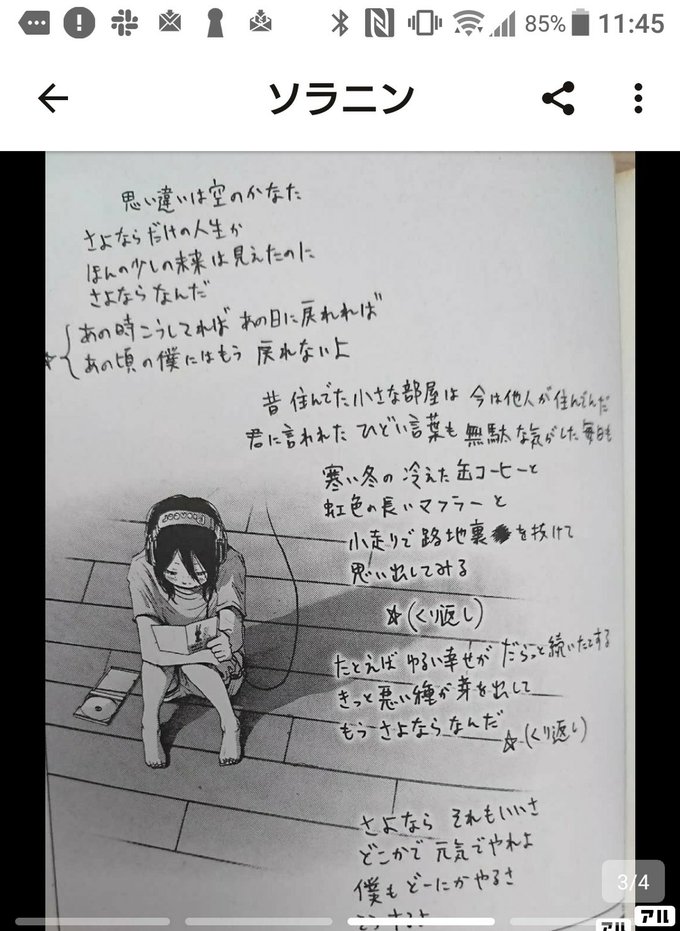 85% 11:45
ソラニン
思い違いは空のかなた
さよならだけの人生か
ほんの少しの未来は見えたのに
さよならなんだ
あの時こうしてれば あの日に戻れれば
☆ あの頃の僕にはもう 戻れないよ
昔 住んでた小さな部屋は 今は他人が住んでんだ
君に言われた ひどい言葉も 無駄な気がした毎日も
寒い冬の 冷えた缶コーヒーと
虹色の長いマフラーと
小走りで 路地裏を抜けて
思い出してみる
☆(くり返し)
たとえば ゆるい幸せが だらっと続いたとする
きっと悪い種が芽を出して
もう さよならなんだ
☆(くり返し)
さよなら それもいいさ
どこかで 元気でやれよ
僕も どーにかやるさ
そうするよ
3/4
アル
アル